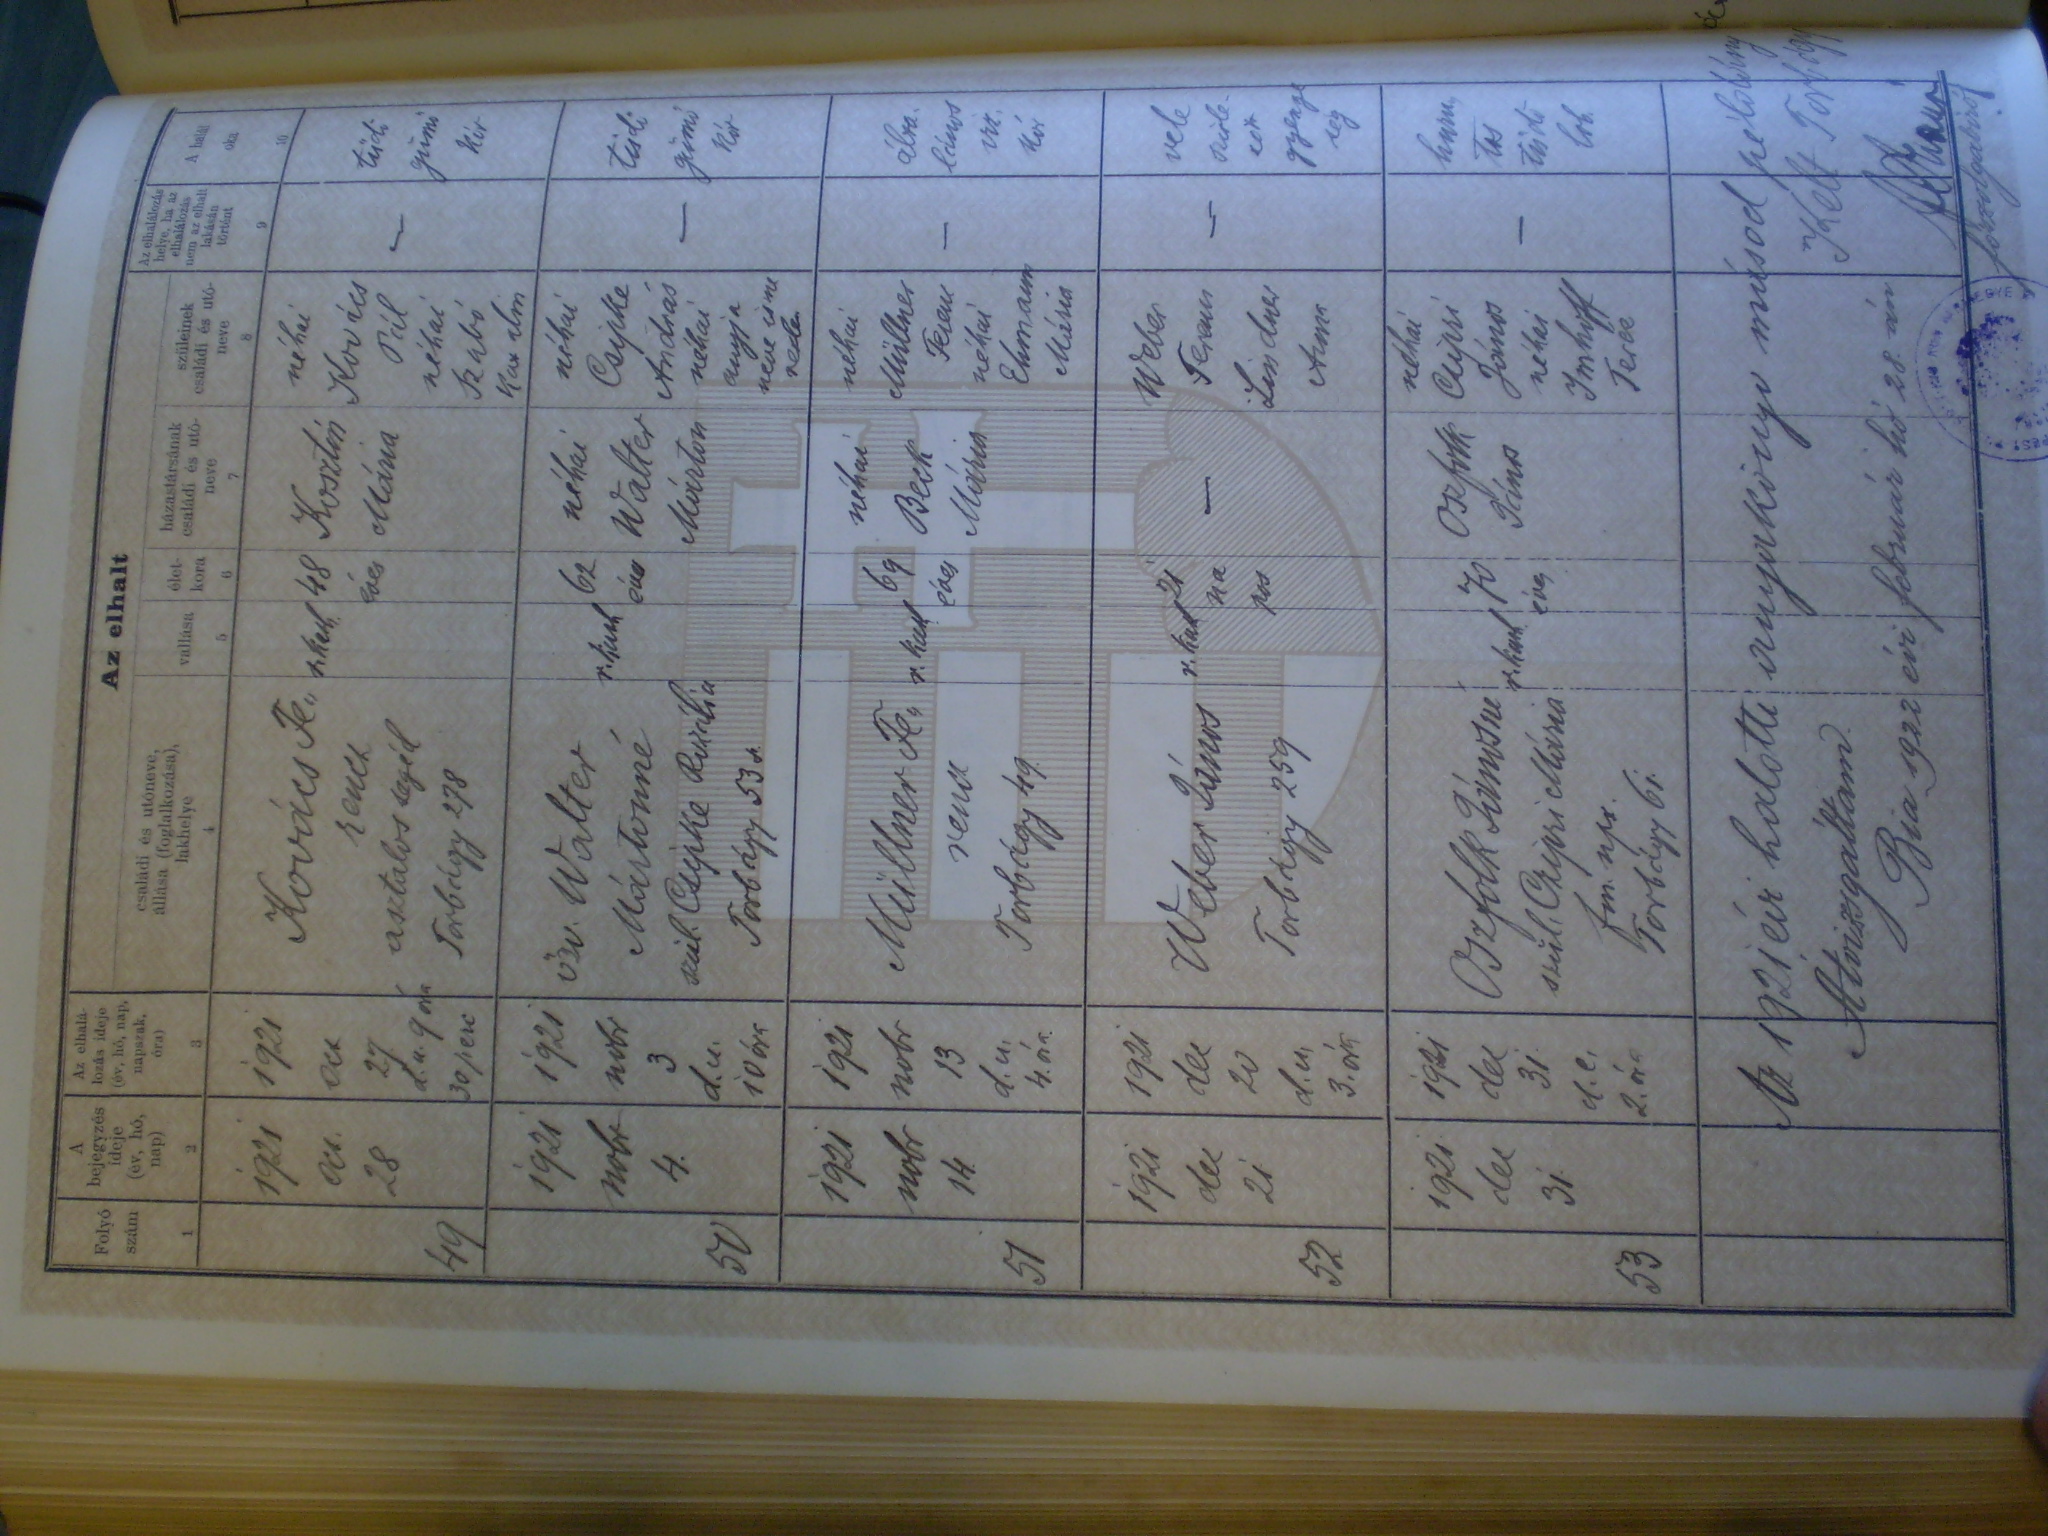 Az elhalt
Folyó
szám
A
bejegyzés
ideje
(év, hó,
nap)
Az elhalá-
lozás ideje
(év, hó, nap,
napszak,
óra)
családi és utóneve,
állása (foglalkozása),
lakhelye
vallása
élet-
kora
házastársának
családi és utó-
neve
szüleinek
családi és utó-
neve
Az elhalálozás
helye, ha az
elhalálozás
nem az elhalt
lakásán
történt
A halál
oka
1
2
3
4
5
6
7
8
9
10
49
1921
oct.
28
1921
oct
27
d.u. 9 óra
30 perc
Kovács Fe„
renc
asztalos segéd
Torbágy 278
r. kath
48
éves
Kosztin
Mária
néhai
Kovács
Pál
néhai
Szabó
—
tüdő
gümő
kór
50
1921
nobr
4.
1921
nobr
3
d.u.
10 óra
özv. Walter
Mártonné
szül. Csipke Rozália
Torbágy 53 s.
r. kath
62
éves
néhai
Walter
Márton
néhai
Csipke
András
néhai
anyja
neve isme
retlen
—
tüdő
gümő
kór
51
1921
nobr
14.
1921
nobr
13
d.u.
4. óra
Müllner Fe„
renc
Torbágy 49.
r. kath
69
éves
néhai
Beck
Mária
néhai
Müllner
Ferenc
néhai
Ehmann
Mária
—
52
1921
dec
21
1921
dec
20
d.u.
3. óra
Weber János
Torbágy 259
r. kath
21
na
pos
—
Weber
Ferenc
Lindner
Anna
—
vele
szüle-
tett
gyenge
ség
53
1921
dec
31.
1921
dec
31.
d.e.
2. óra
Oszfolk Jánosné
szül. Czipri Mária
Torbágy 61.
r. kath
70
éves
Oszfolk
János
néhai
Czipri
János
néhai
Imhoff
Teréz
—
huru,
tos
tüdő
lob.
Az 1921 évi halotti anyakönyv másod példány
Átvizsgáltam.
Kelt Torbágy
Bia 1922 évi február hó 28-án
főszolgabíró